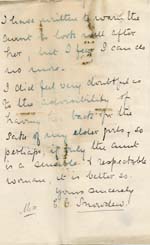 I have written to warn the
aunt to look well after
her, but I fear I can do
no more.
I did feel very doubtful as
to the advisability of
having her back for the
sake of my elder girls, so
perhaps, if only the aunt
is a sensible & respectable
woman, it is better so.
Yours sincerely
E. C. Snowden